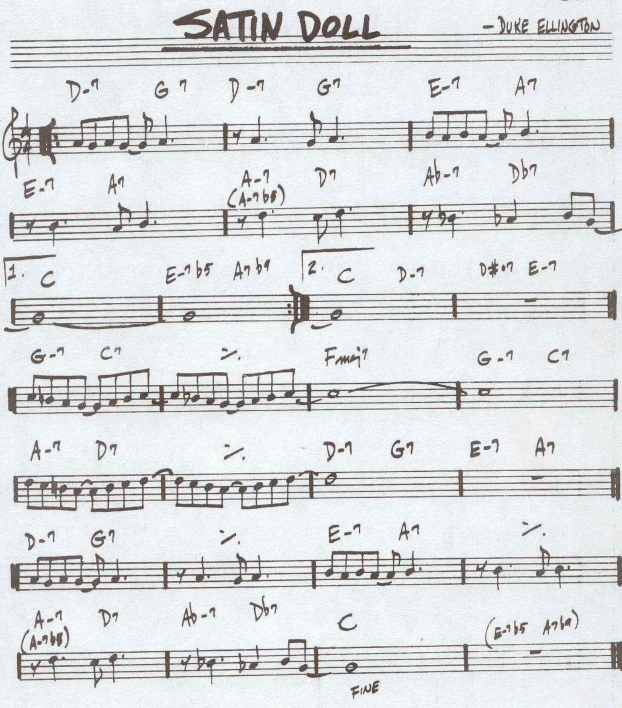 SATIN DOLL
- DUKE ELLINGTON
D-7 G7 D-7 G7 E-7 A7
E-7 A7 A-7 D7 Ab-7 Db7
(A-7b5)
1. C E-7b5 A7b9 2. C D-7 D#o7 E-7
G-7 C7 Fmaj7 G-7 C7
A-7 D7 D-7 G7 E-7 A7
D-7 G7 E-7 A7
A-7 D7 Ab-7 Db7 C (E-7b5 A7b9)
(A-7b5)
FINE